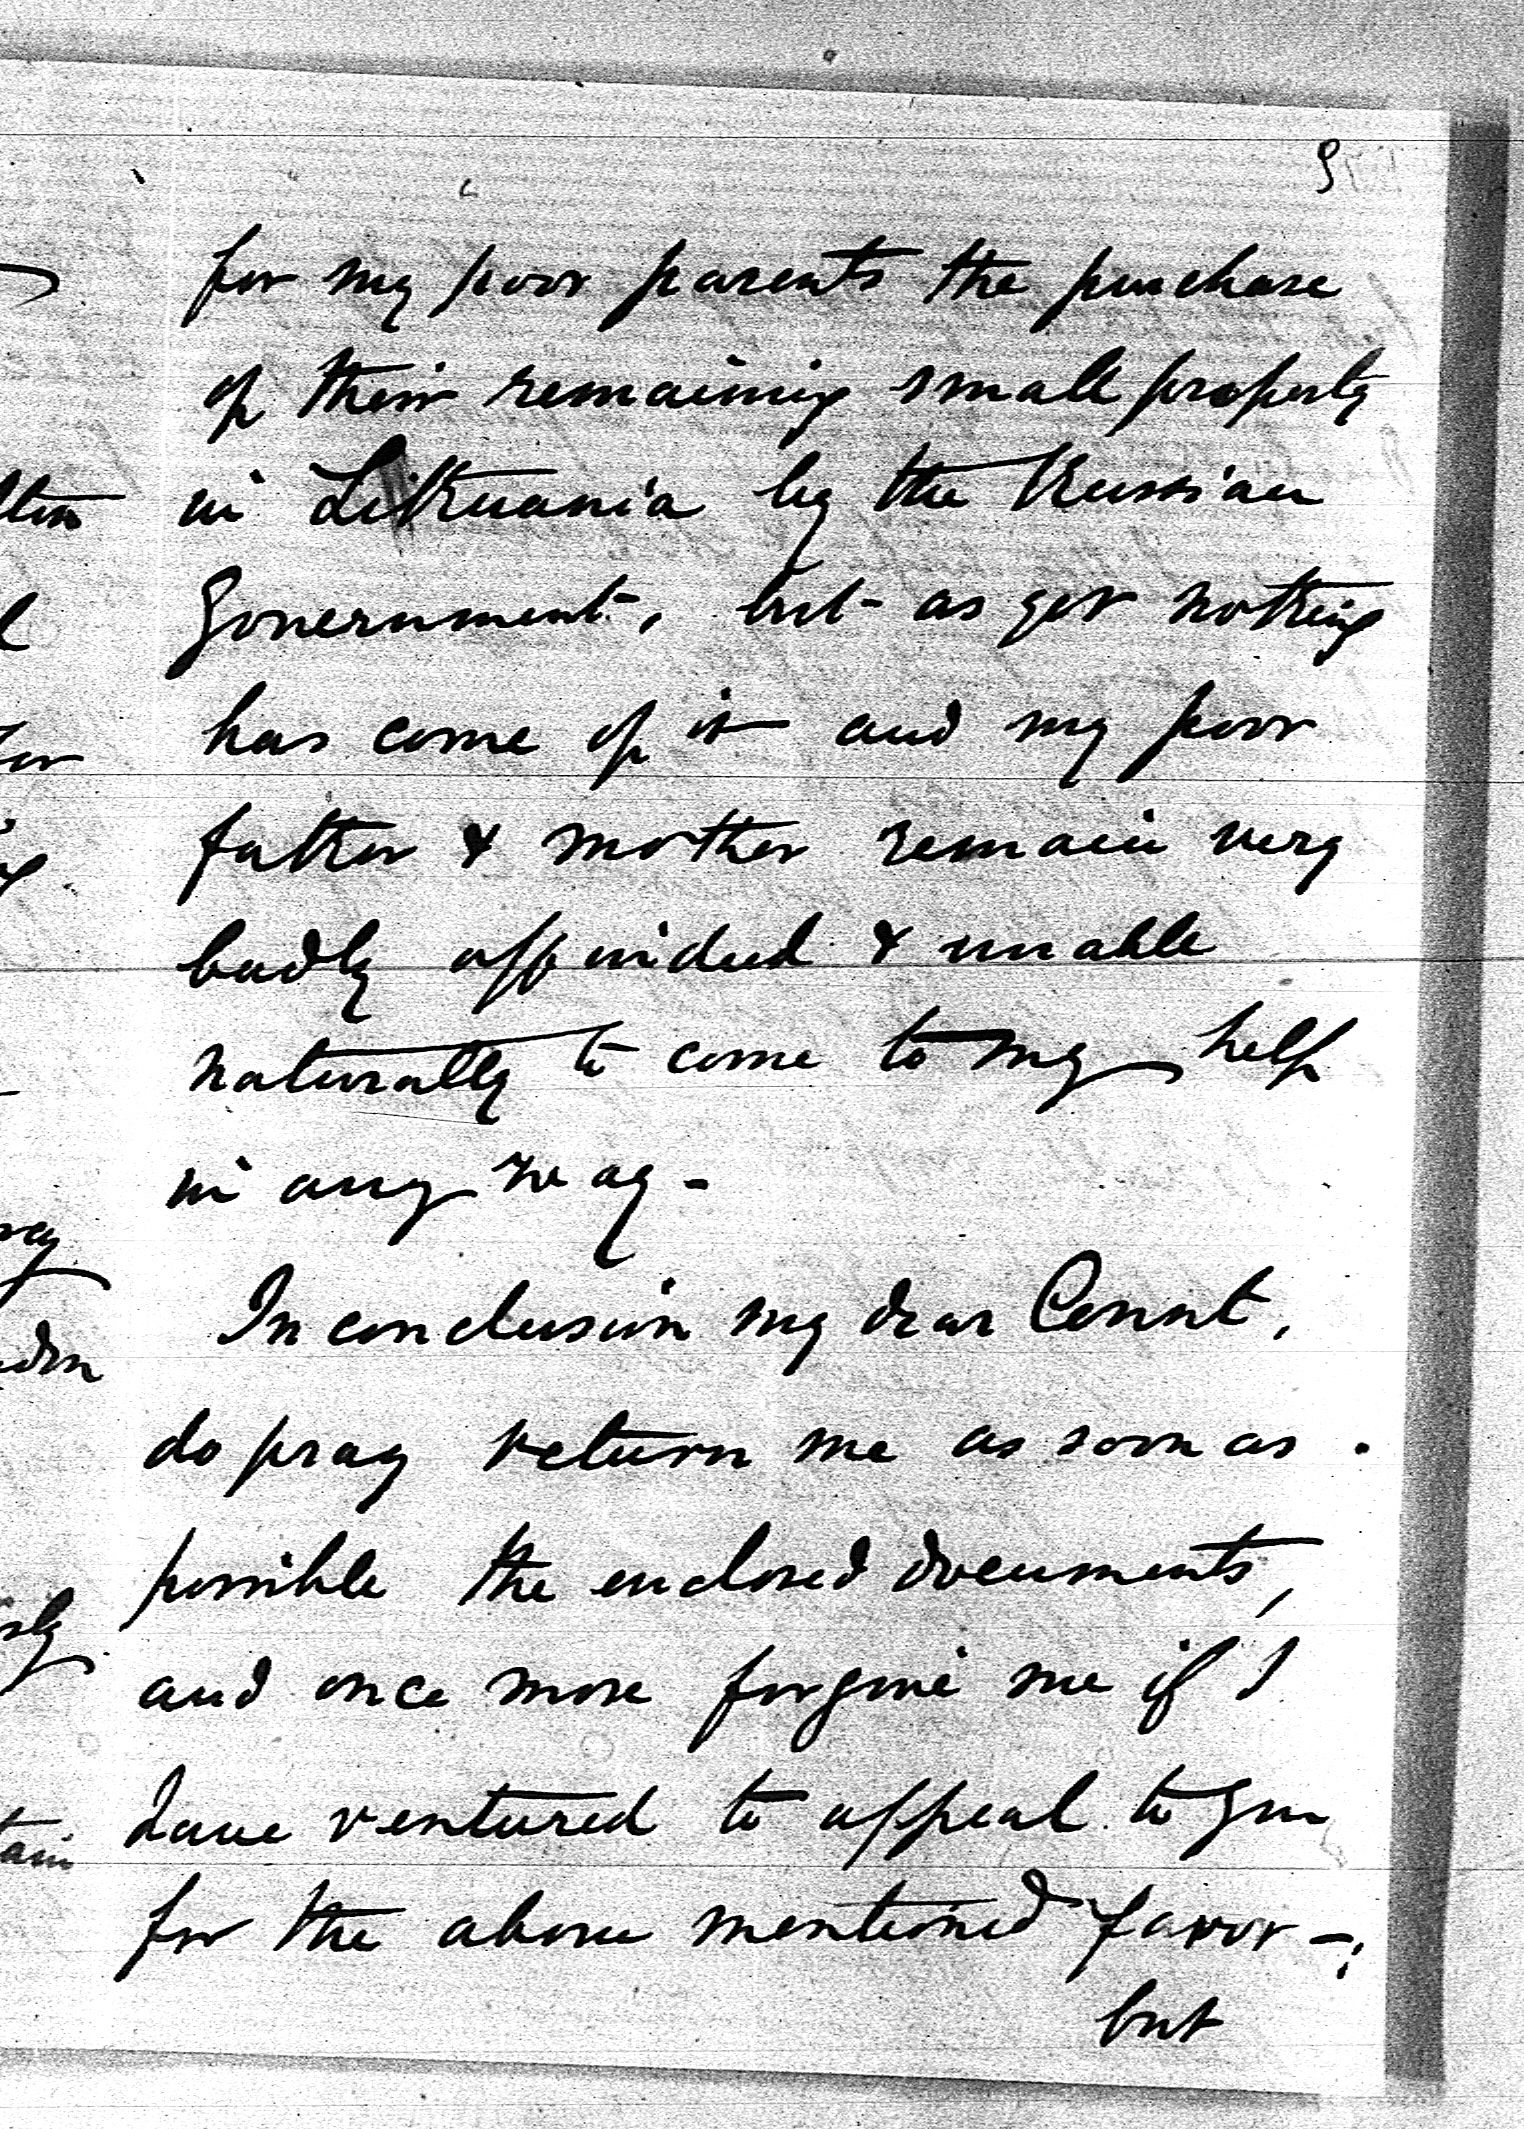 9
for my poor parents the purchase
of their remaining small property
in Lithuania by the Russian
Government, but as yet nothing
has come of it and my poor
father & mother remain very
badly off indeed & unable
naturally to come to my help
in any way -
In conclusion my dear Count,
do pray return me as soon as
possible the enclosed documents,
and once more forgive me if I
have ventured to appeal to you
for the above mentioned favor -;
but